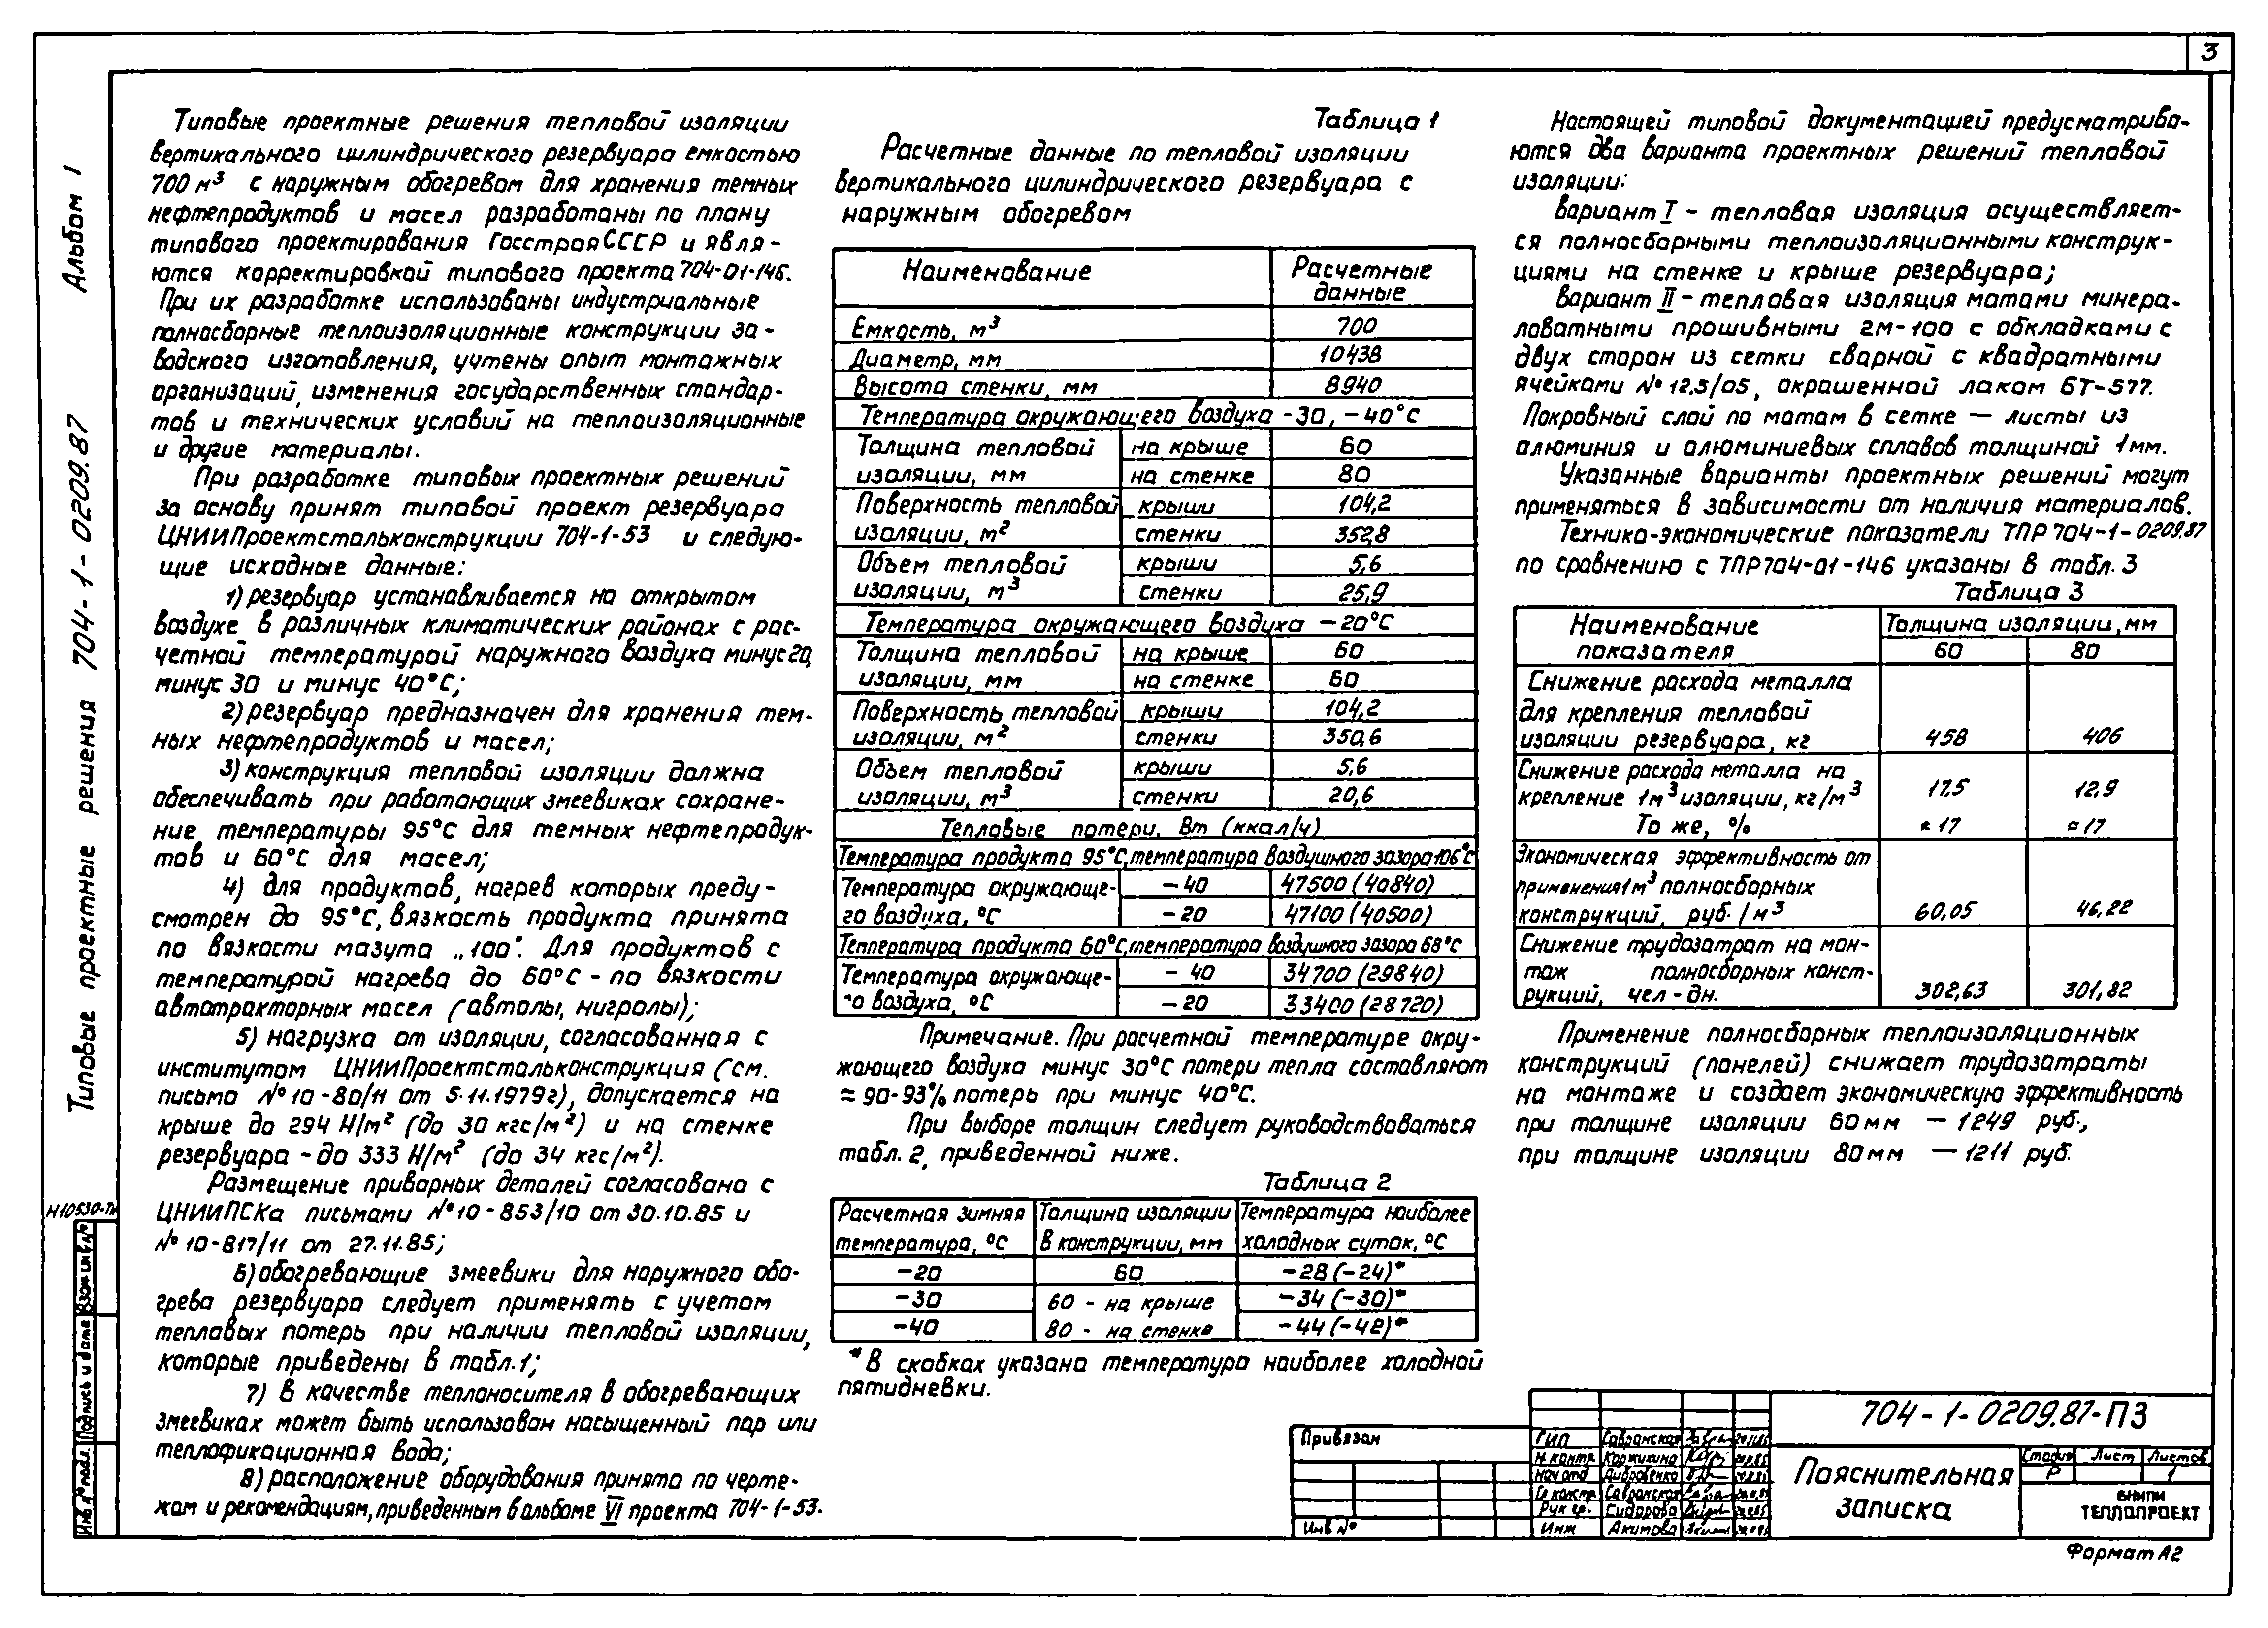 3
Альбом 1
Типовые проектные решения 704-1-0209.87
Типовые проектные решения тепловой изоляции
вертикального цилиндрического резервуара емкостью
700 м³ с наружным обогревом для хранения темных
нефтепродуктов и масел разработаны по плану
типового проектирования Госстроя СССР и явля-
ются корректировкой типового проекта 704-01-146.
При их разработке использованы индустриальные
полносборные теплоизоляционные конструкции за-
водского изготовления, учтены опыт монтажных
организаций, изменения государственных стандар-
тов и технических условий на теплоизоляционные
и другие материалы.
При разработке типовых проектных решений
за основу принят типовой проект резервуара
ЦНИИПроектстальконструкции 704-1-53 и следую-
щие исходные данные:
1) резервуар устанавливается на открытом
воздухе в различных климатических районах с рас-
четной температурой наружного воздуха минус 20,
минус 30 и минус 40°С;
2) резервуар предназначен для хранения тем-
ных нефтепродуктов и масел;
3) конструкция тепловой изоляции должна
обеспечивать при работающих змеевиках сохране-
ние температуры 95°С для темных нефтепродук-
тов и 60°С для масел;
4) для продуктов, нагрев которых преду-
смотрен до 95°С, вязкость продукта принята
по вязкости мазута „100". Для продуктов с
температурой нагрева до 60°С - по вязкости
автотракторных масел (автолы, нигролы);
5) нагрузка от изоляции, согласованная с
институтом ЦНИИПроектстальконструкция (см.
письмо №10-80/11 от 5.11.1979г), допускается на
крыше до 294 Н/м² (до 30 кгс/м²) и на стенке
резервуара - до 333 Н/м² (до 34 кгс/м²).
Размещение приварных деталей согласовано с
ЦНИИПСКа письмами №10-853/10 от 30.10.85 и
№ 10-817/11 от 27.11.85;
6) обогревающие змеевики для наружного обо-
грева резервуара следует применять с учетом
тепловых потерь при наличии тепловой изоляции,
которые приведены в табл.1;
7) В качестве теплоносителя в обогревающих
змеевиках может быть использован насыщенный пар или
теплофикационная вода;
8) расположение оборудования принято по черте-
жам и рекомендациям, приведенным в альбоме VI проекта 704-1-53.
Таблица 1
Расчетные данные по тепловой изоляции
вертикального цилиндрического резервуара с
наружным обогревом
Наименование Расчетные данные
Емкость, м³ 700
Диаметр, мм 10438
Высота стенки, мм 8940
Температура окружающего воздуха -30, -40°С
Толщина тепловой на крыше 60
изоляции, мм на стенке 80
Поверхность тепловой крыши 104,2
изоляции, м² стенки 352,8
Объем тепловой крыши 5,6
изоляции, м³ стенки 25,9
Температура окружающего воздуха -20°С
Толщина тепловой на крыше 60
изоляции, мм на стенке 60
Поверхность тепловой крыши 104,2
изоляции, м² стенки 350,6
Объем тепловой крыши 5,6
изоляции, м³ стенки 20,6
Тепловые потери, Вт (ккал/ч)
Температура продукта 95°С, температура воздушного зазора 106°С
Температура окружающе- -40 47500 (40840)
го воздуха, °С -20 47100 (40500)
Температура продукта 60°С, температура воздушного зазора 68°С
Температура окружающе- -40 34700 (29840)
го воздуха, °С -20 33400 (28720)
Примечание. При расчетной температуре окру-
жающего воздуха минус 30°С потери тепла составляют
≈ 90-93% потерь при минус 40°С.
При выборе толщин следует руководствоваться
табл. 2, приведенной ниже.
Таблица 2
Расчетная зимняя Толщина изоляции Температура наиболее
температура, °С в конструкции, мм холодных суток, °С
-20 60 -28 (-24)*
-30 60 - на крыше -34 (-30)*
-40 80 - на стенке -44 (-42)*
* В скобках указана температура наиболее холодной
пятидневки.
Настоящей типовой документацией предусматрива-
ются два варианта проектных решений тепловой
изоляции:
Вариант I - тепловая изоляция осуществляет-
ся полносборными теплоизоляционными конструк-
циями на стенке и крыше резервуара;
Вариант II - тепловая изоляция матами минера-
ловатными прошивными 2М-100 с обкладками с
двух сторон из сетки сварной с квадратными
ячейками № 12,5/05, окрашенной лаком БТ-577.
Покровный слой по матам в сетке — листы из
алюминия и алюминиевых сплавов толщиной 1мм.
Указанные варианты проектных решений могут
применяться в зависимости от наличия материалов.
Технико-экономические показатели ТПР 704-1-0209.87
по сравнению с ТПР704-01-146 указаны в табл. 3
Таблица 3
Наименование Толщина изоляции, мм
показателя 60 80
Снижение расхода металла
для крепления тепловой
изоляции резервуара, кг 458 406
Снижение расхода металла на
крепление 1м³ изоляции, кг/м³ 17,5 12,9
То же, % ≈17 ≈17
Экономическая эффективность от
применения 1м³ полносборных
конструкций, руб./м³ 60,05 46,22
Снижение трудозатрат на мон-
таж полносборных конст-
рукций, чел-дн. 302,63 301,82
Применение полносборных теплоизоляционных
конструкций (панелей) снижает трудозатраты
на монтаже и создает экономическую эффективность
при толщине изоляции 60мм — 1249 руб.,
при толщине изоляции 80мм — 1211 руб.
Взам инв.№
Подпись и дата
Инв № подл.
Привязан
Инв №
ГИП Савранская
Н. контр Коржикина
Нач отд
Гл констр Савранская
Рук гр. Сидорова
Инж Акимова
704-1-0209.87-ПЗ
Пояснительная
записка
Стадия Лист Листов
Р 1
ВНИПИ
ТЕПЛОПРОЕКТ
Формат А2